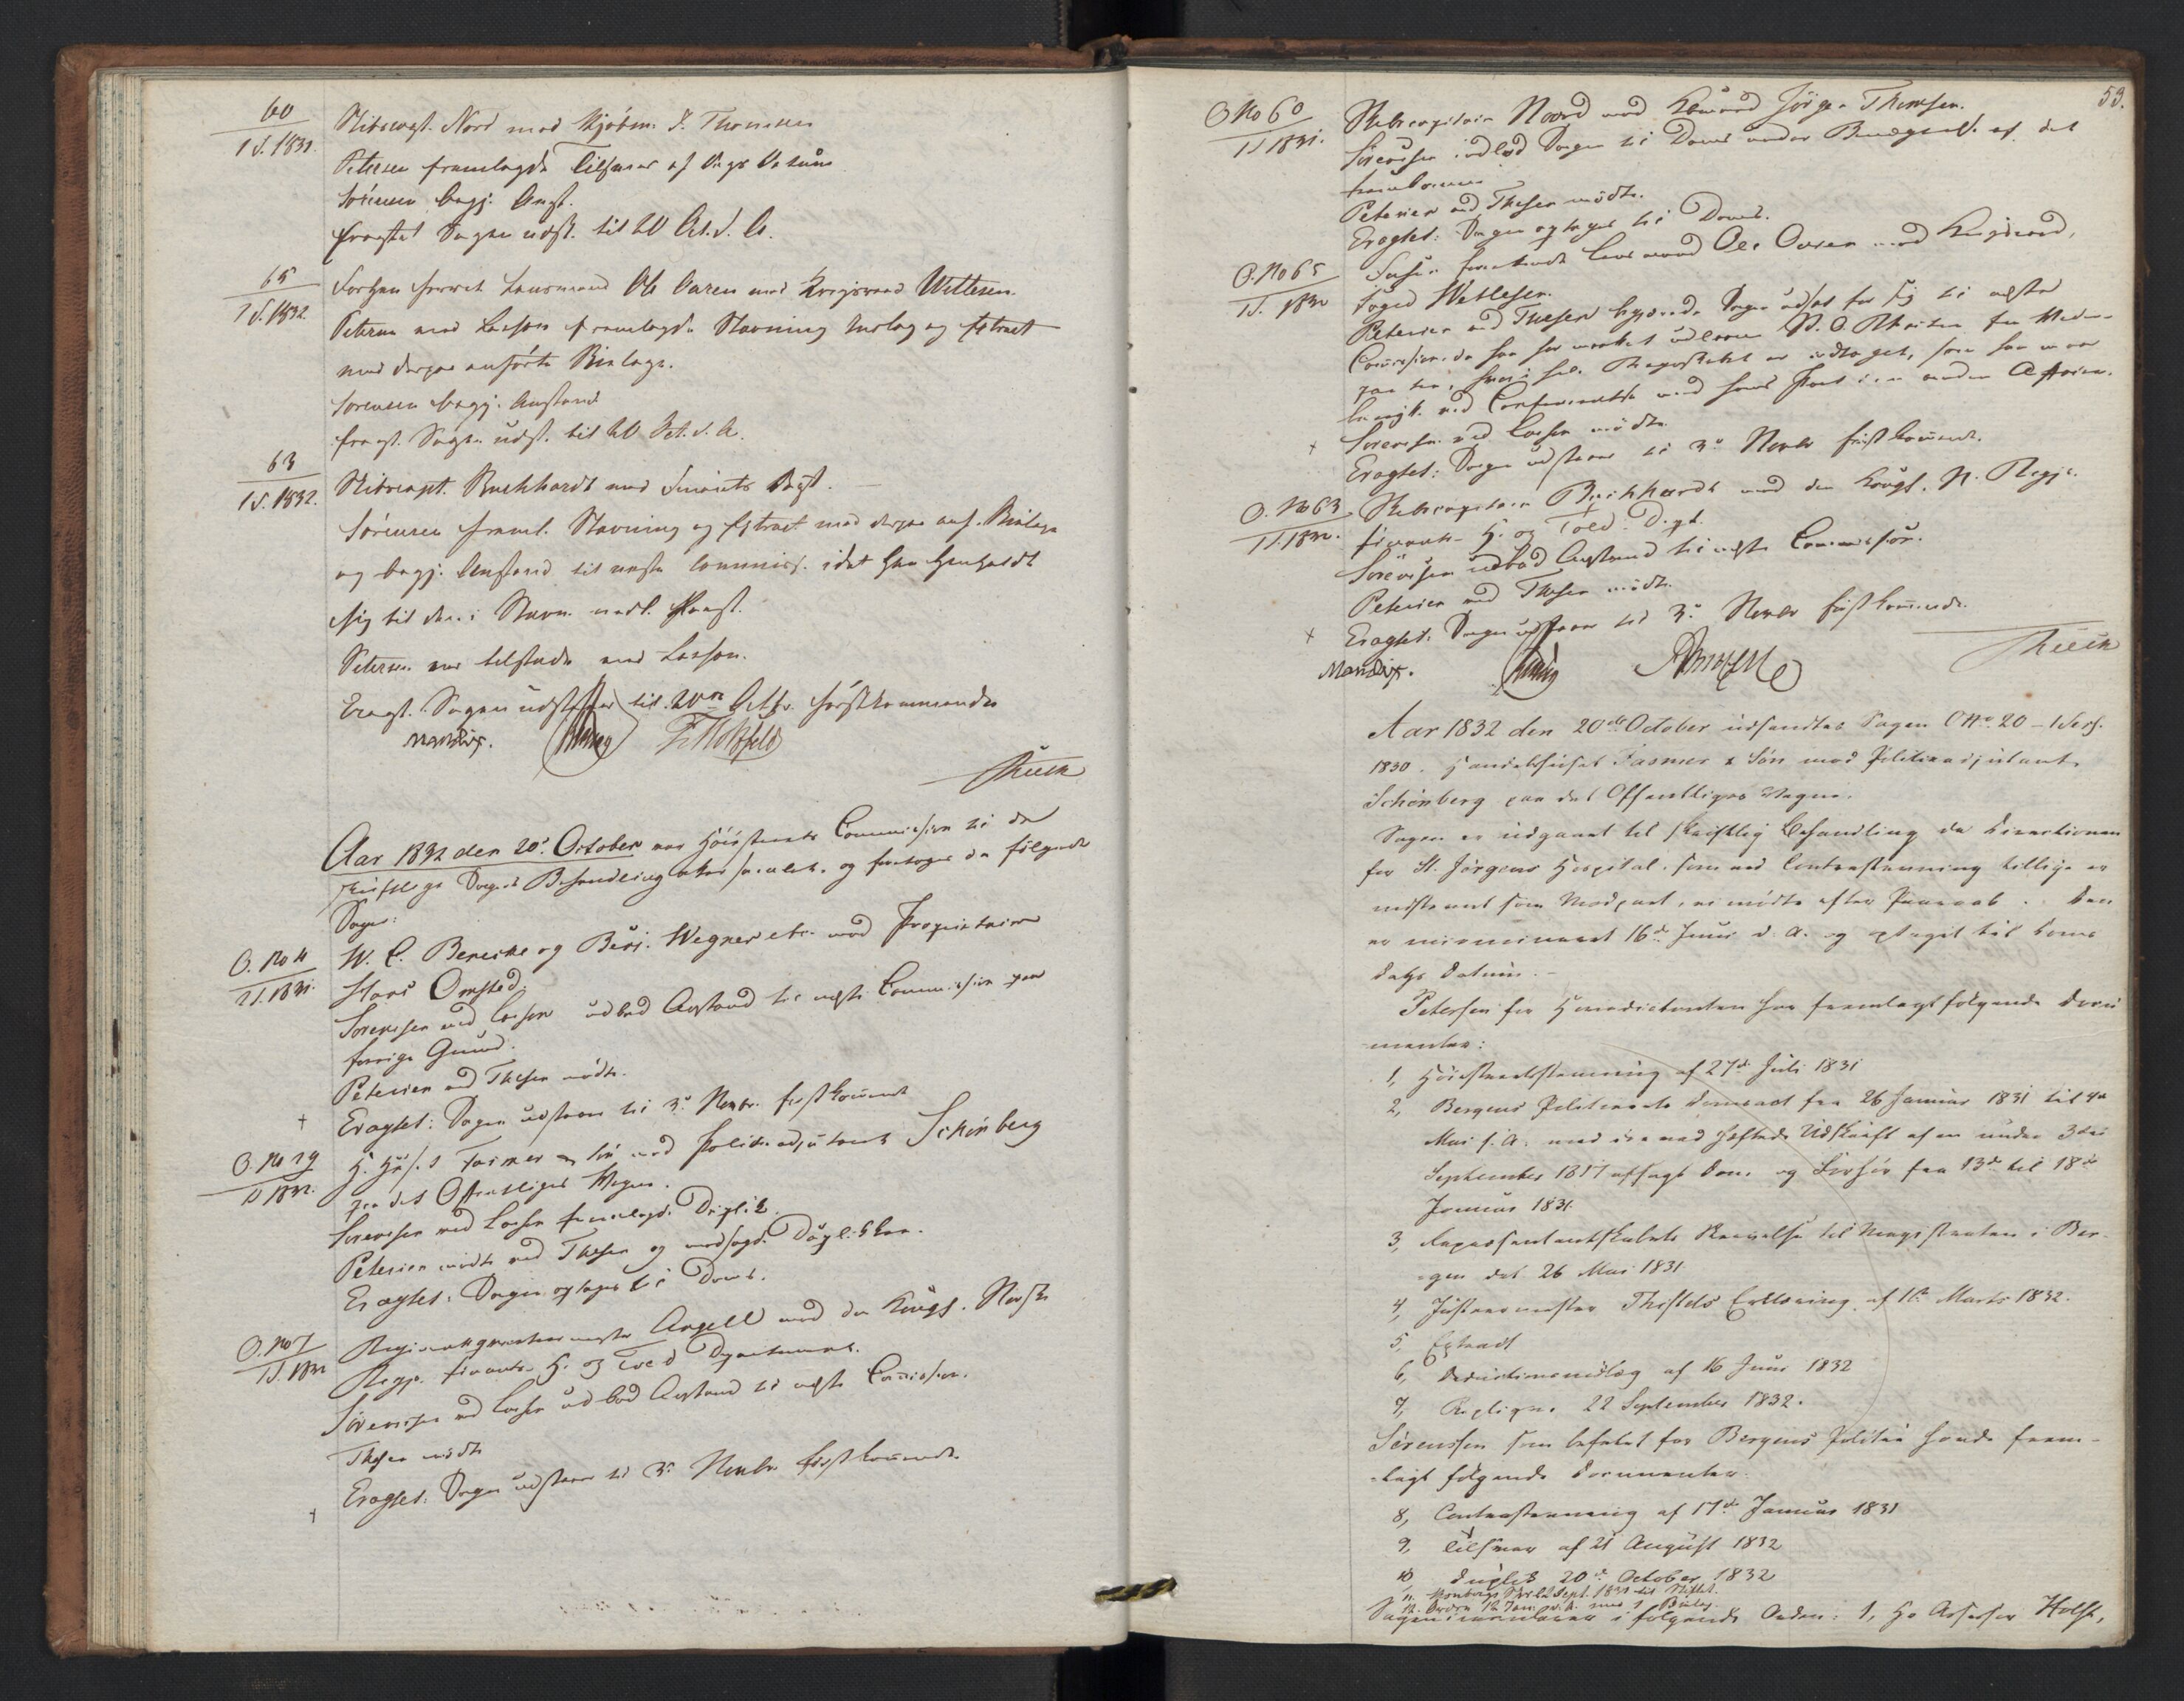 60
1 S. 1831.
Skibscapt. Nord mod Kjöbm. J. Thomsen
Petersen fremlagde Tilsvar af Dags Datum
Sörensen begj. Anst.
Eragtet Sagen udst. til 20 Oct. d. A.
65
1 S. 1832.
Lensmand Ole Olsen mod Krigsraad Wetlesen.
Petersen ved Larsen fremlagde Stævning Indlæg og Extract
med derpaa anførte Bielage.
Sorensen begj. Anstand
Eragt. Sagen udst. til 20 Oct. d. A.
63
1 S. 1832.
Skibscapt. Buchhardt mod Finants Dept.
Sörensen freml. Stævning og Extract med derpaa anf. Bielage
og begj. Anstand til næste Commiss. idet han henholdt
sig til den i Stævn. nedl. Paast.
Petersen var tilstede ved Larsen.
Eragt. Sagen udstaaer til 20de Octbr. førstkommende
Mandix.
Aar 1832 den 20de October var Höiesterets Commission til de
skriftlige Sagers Behandling atter samlet, og foretoges da følgende
Sager:
O. No 4
1 S. 1831.
W. C. Benecke og Benj. Wegner etc. mod Proprietair
Hans Omsted.
Sörensen ved Larsen udbad Anstand til næste Commission paa
forrige Grund.
Petersen ved Thesen mødte.
+
Eragtet: Sagen udstaaer til 3de Novbr. førstkommende
O. No 29
1 S 1832.
H. Huset Fasmer & Søn mod Politieadjutant Schönberg
paa det Offentliges Vegne.
Sörensen ved Larsen fremlagde Duplik.
Petersen mødte ved Thesen og modtog Duplikken.
Eragtet: Sagen optages til Doms.
O. No 7
1 S. 1832
Regimentsqvarteermester Angell mod den Kongl. Norske
Regjs. Finants- H. og Told Departement.
Sörensen ved Larsen udbad Anstand til næste Commission.
Thesen mødte
+
Eragtet: Sagen udstaaer til 3de Novbr. førstkommende
53.
O No 60
1 S 1831.
Skibscapitain Noord mod Kjøbmand Jörgen Thomsen.
Sörensen indlod Sagen til Doms under Benægtelse af det
fremkomne
Petersen ved Thesen mødte.
Eragtet: Sagen optages til Doms.
O. No 65
1 S. 1832
Lensmand Ole Olsen mod Krigsraad,
foged Wetlesen.
Petersen ved Thesen begjærede Sagen udsat for sig til næste
Sörensen ved Larsen mødte.
+
Eragtet: Sagen udstaaer til 3de Novbr førstkommende.
O. No 63
1 S. 1832.
Skibscapitain Buchhardt mod den Kongl. N. Regjs.
Finants- H. og Told-Dept.
Sörensen udbad Anstand til næste Commission.
Petersen ved Thesen mødte.
+
Eragtet: Sagen udstaaer til 3de Novbr førstkommende.
Mandix.
Aar 1832 den 20de October udsendtes Sagen O No 20 – 1 Sess.
1830. Handelshuset Fasmer & Søn mod Politieadjutant
Schönberg paa det Offentliges Vegne.
Sagen er udgaaet til skriftlig Behandling da Directionen
for St. Jørgens Hospital, som ved Contrastævning tillige er
indstævnt som Modpart, ei mødte efter Paaraab. Den
er incamineret 16de Juni d. A. og optaget til Doms
Dags Datum. –
Petersen for Hovedcitanten har fremlagt følgende Docu
menter:
1, Höiesteretsstævning af 27de Juli 1831
2, Bergens Politierets Domsact fra 26 Januar 1831 til 4de
Mai s. A. med ... hæftede Udskrift af en under 3die
September 1817 afsagt Dom og Forhör fra 13de til 18de
Januar 1831.
3, Repræsentantskabets Skrivelse til Magistraten i Ber-
gen dat 26 Mai 1831.
4, Justermester Thistels Erklæring af 1ste Marts 1832.
5, Extract
6, Deductionsindlæg af 16 Juni 1832
7, Repliqve 22 September 1832.
Sörenssen som befalet for Bergens Politie havde frem-
lagt følgende Documenter.
8, Contrastævning af 17de Januar 1831
9, Tilsvar af 21 August 1832
10 Duplik 20de October 1832
12. Ordre 12 Jan. d. A. med 1 Bielag.
Sagen circulerer i følgende Orden: 1, Hr Assessor Holst,